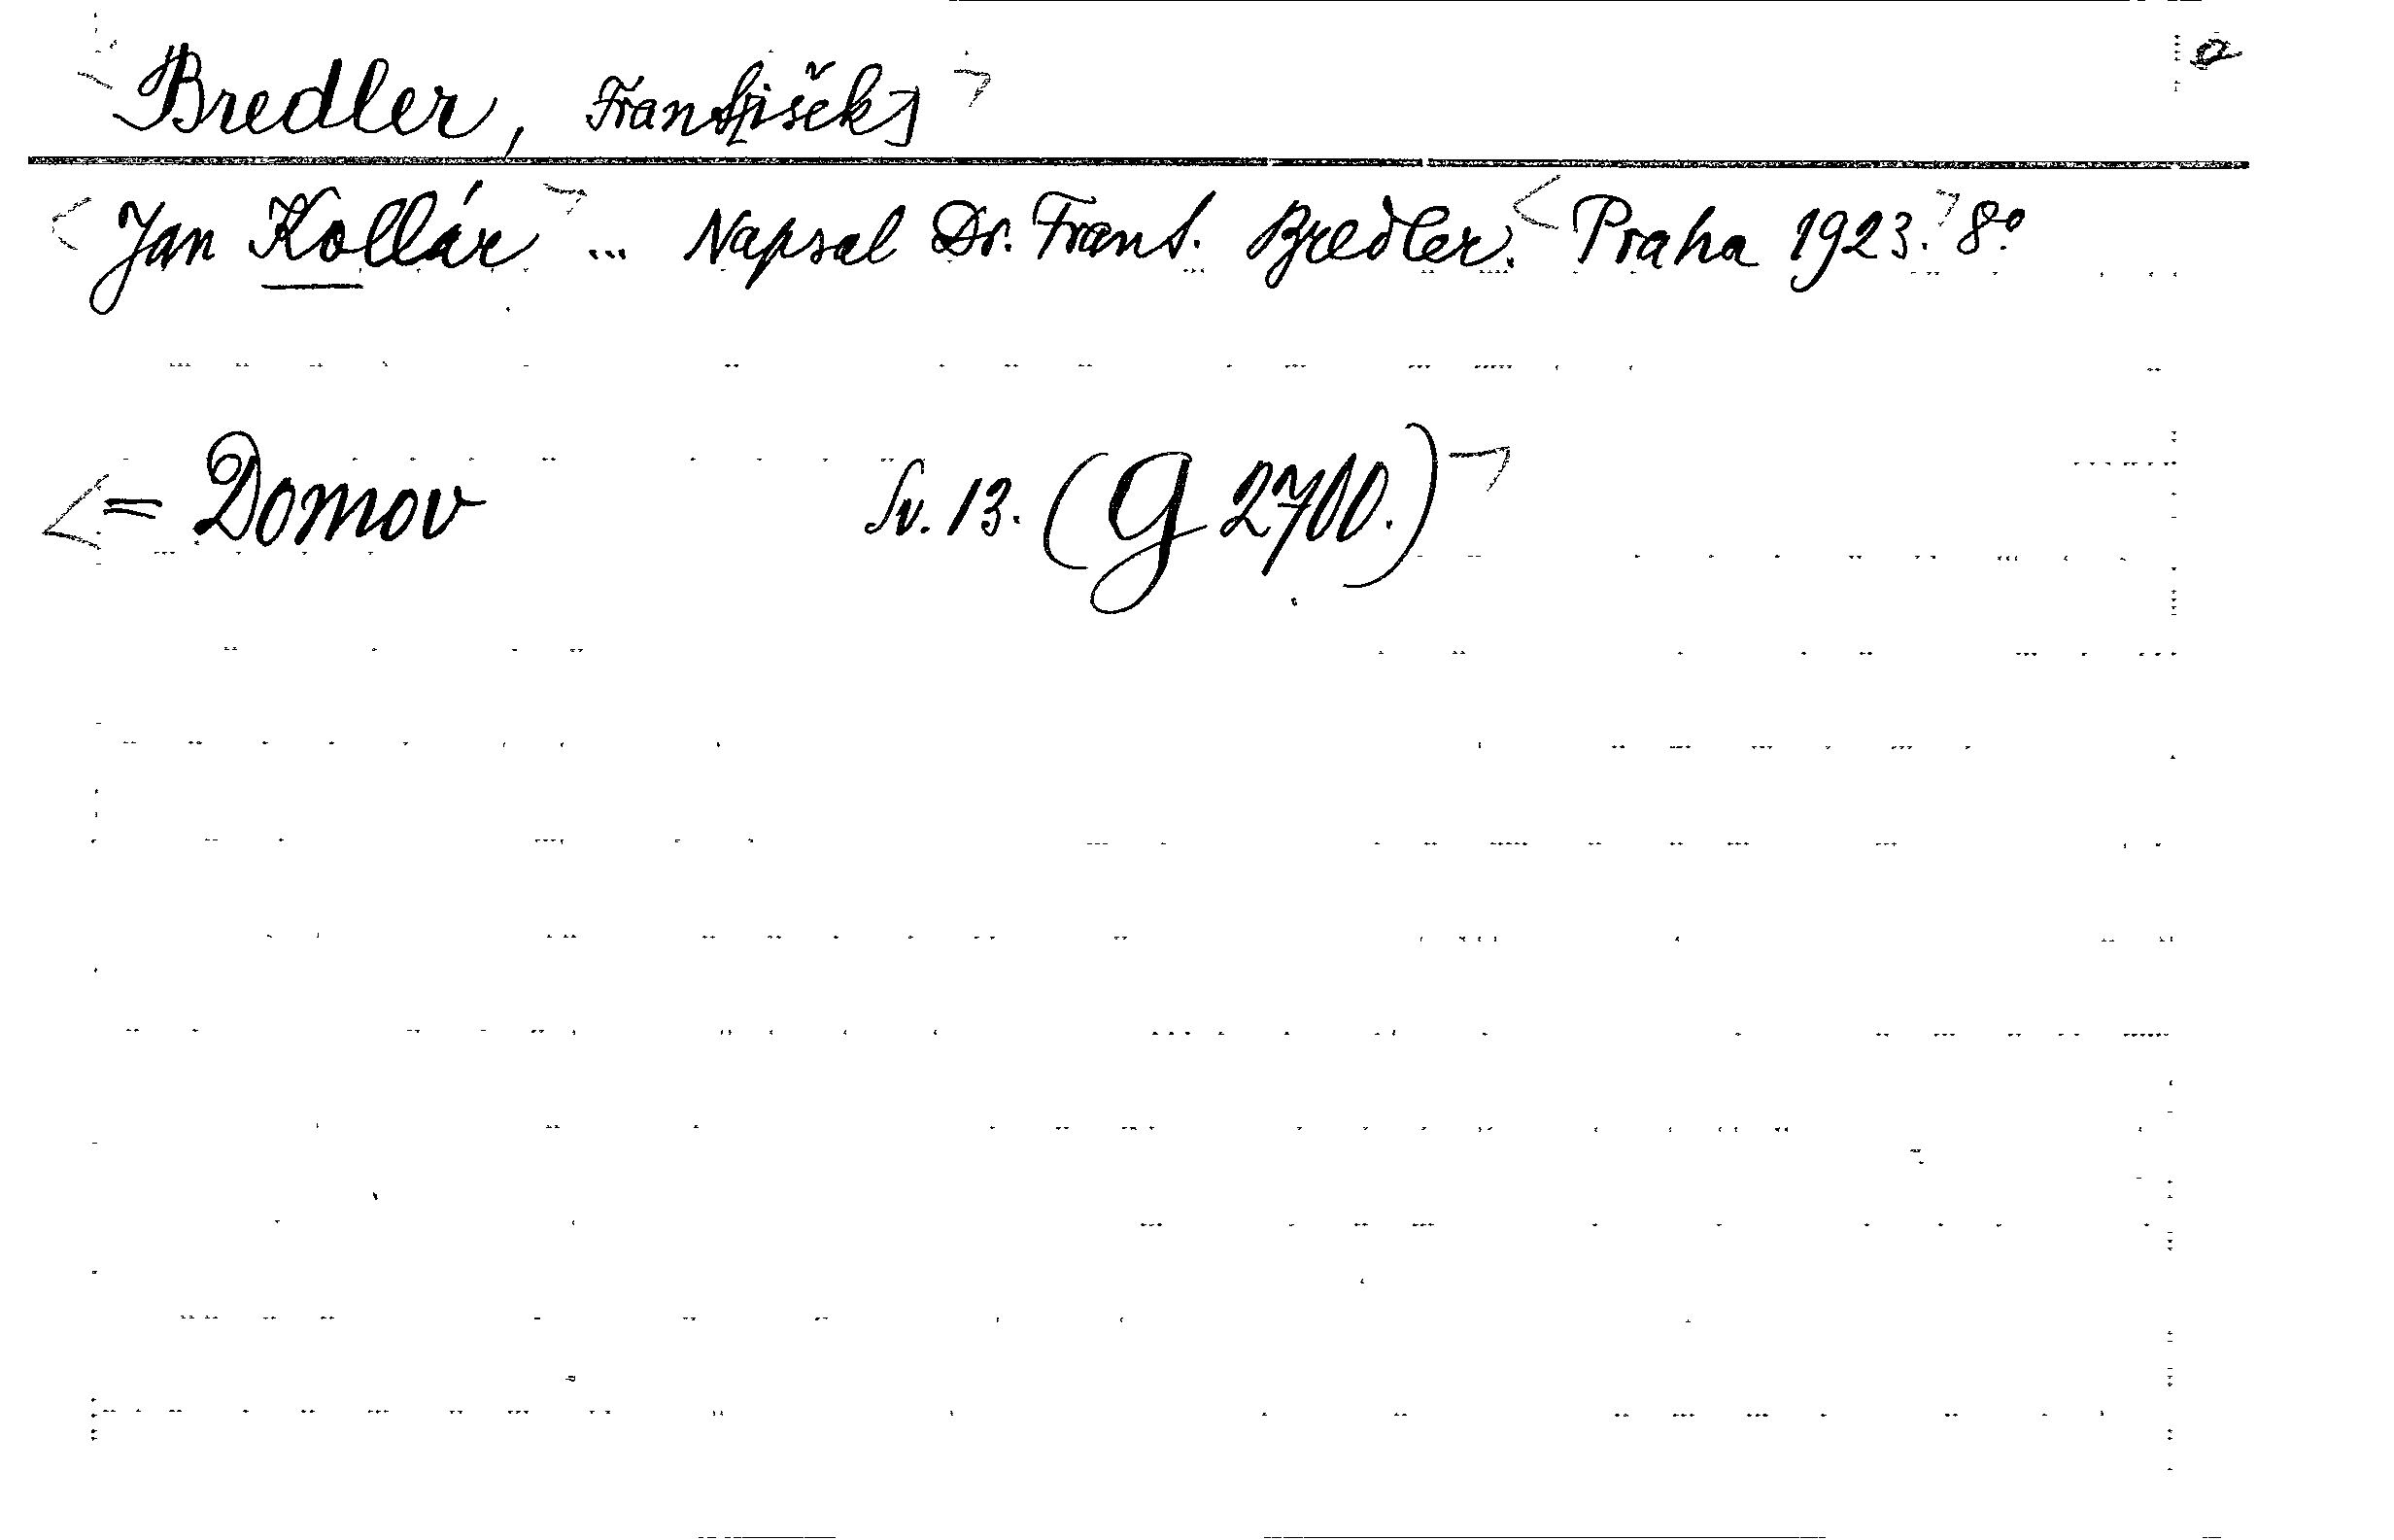 a
Bredler, Frant[išek]
Jan Kollár ... Napsal Dr. Frant. Bredler. Praha 1923. 8°
= Domov Sv. 13. (G 2700.)